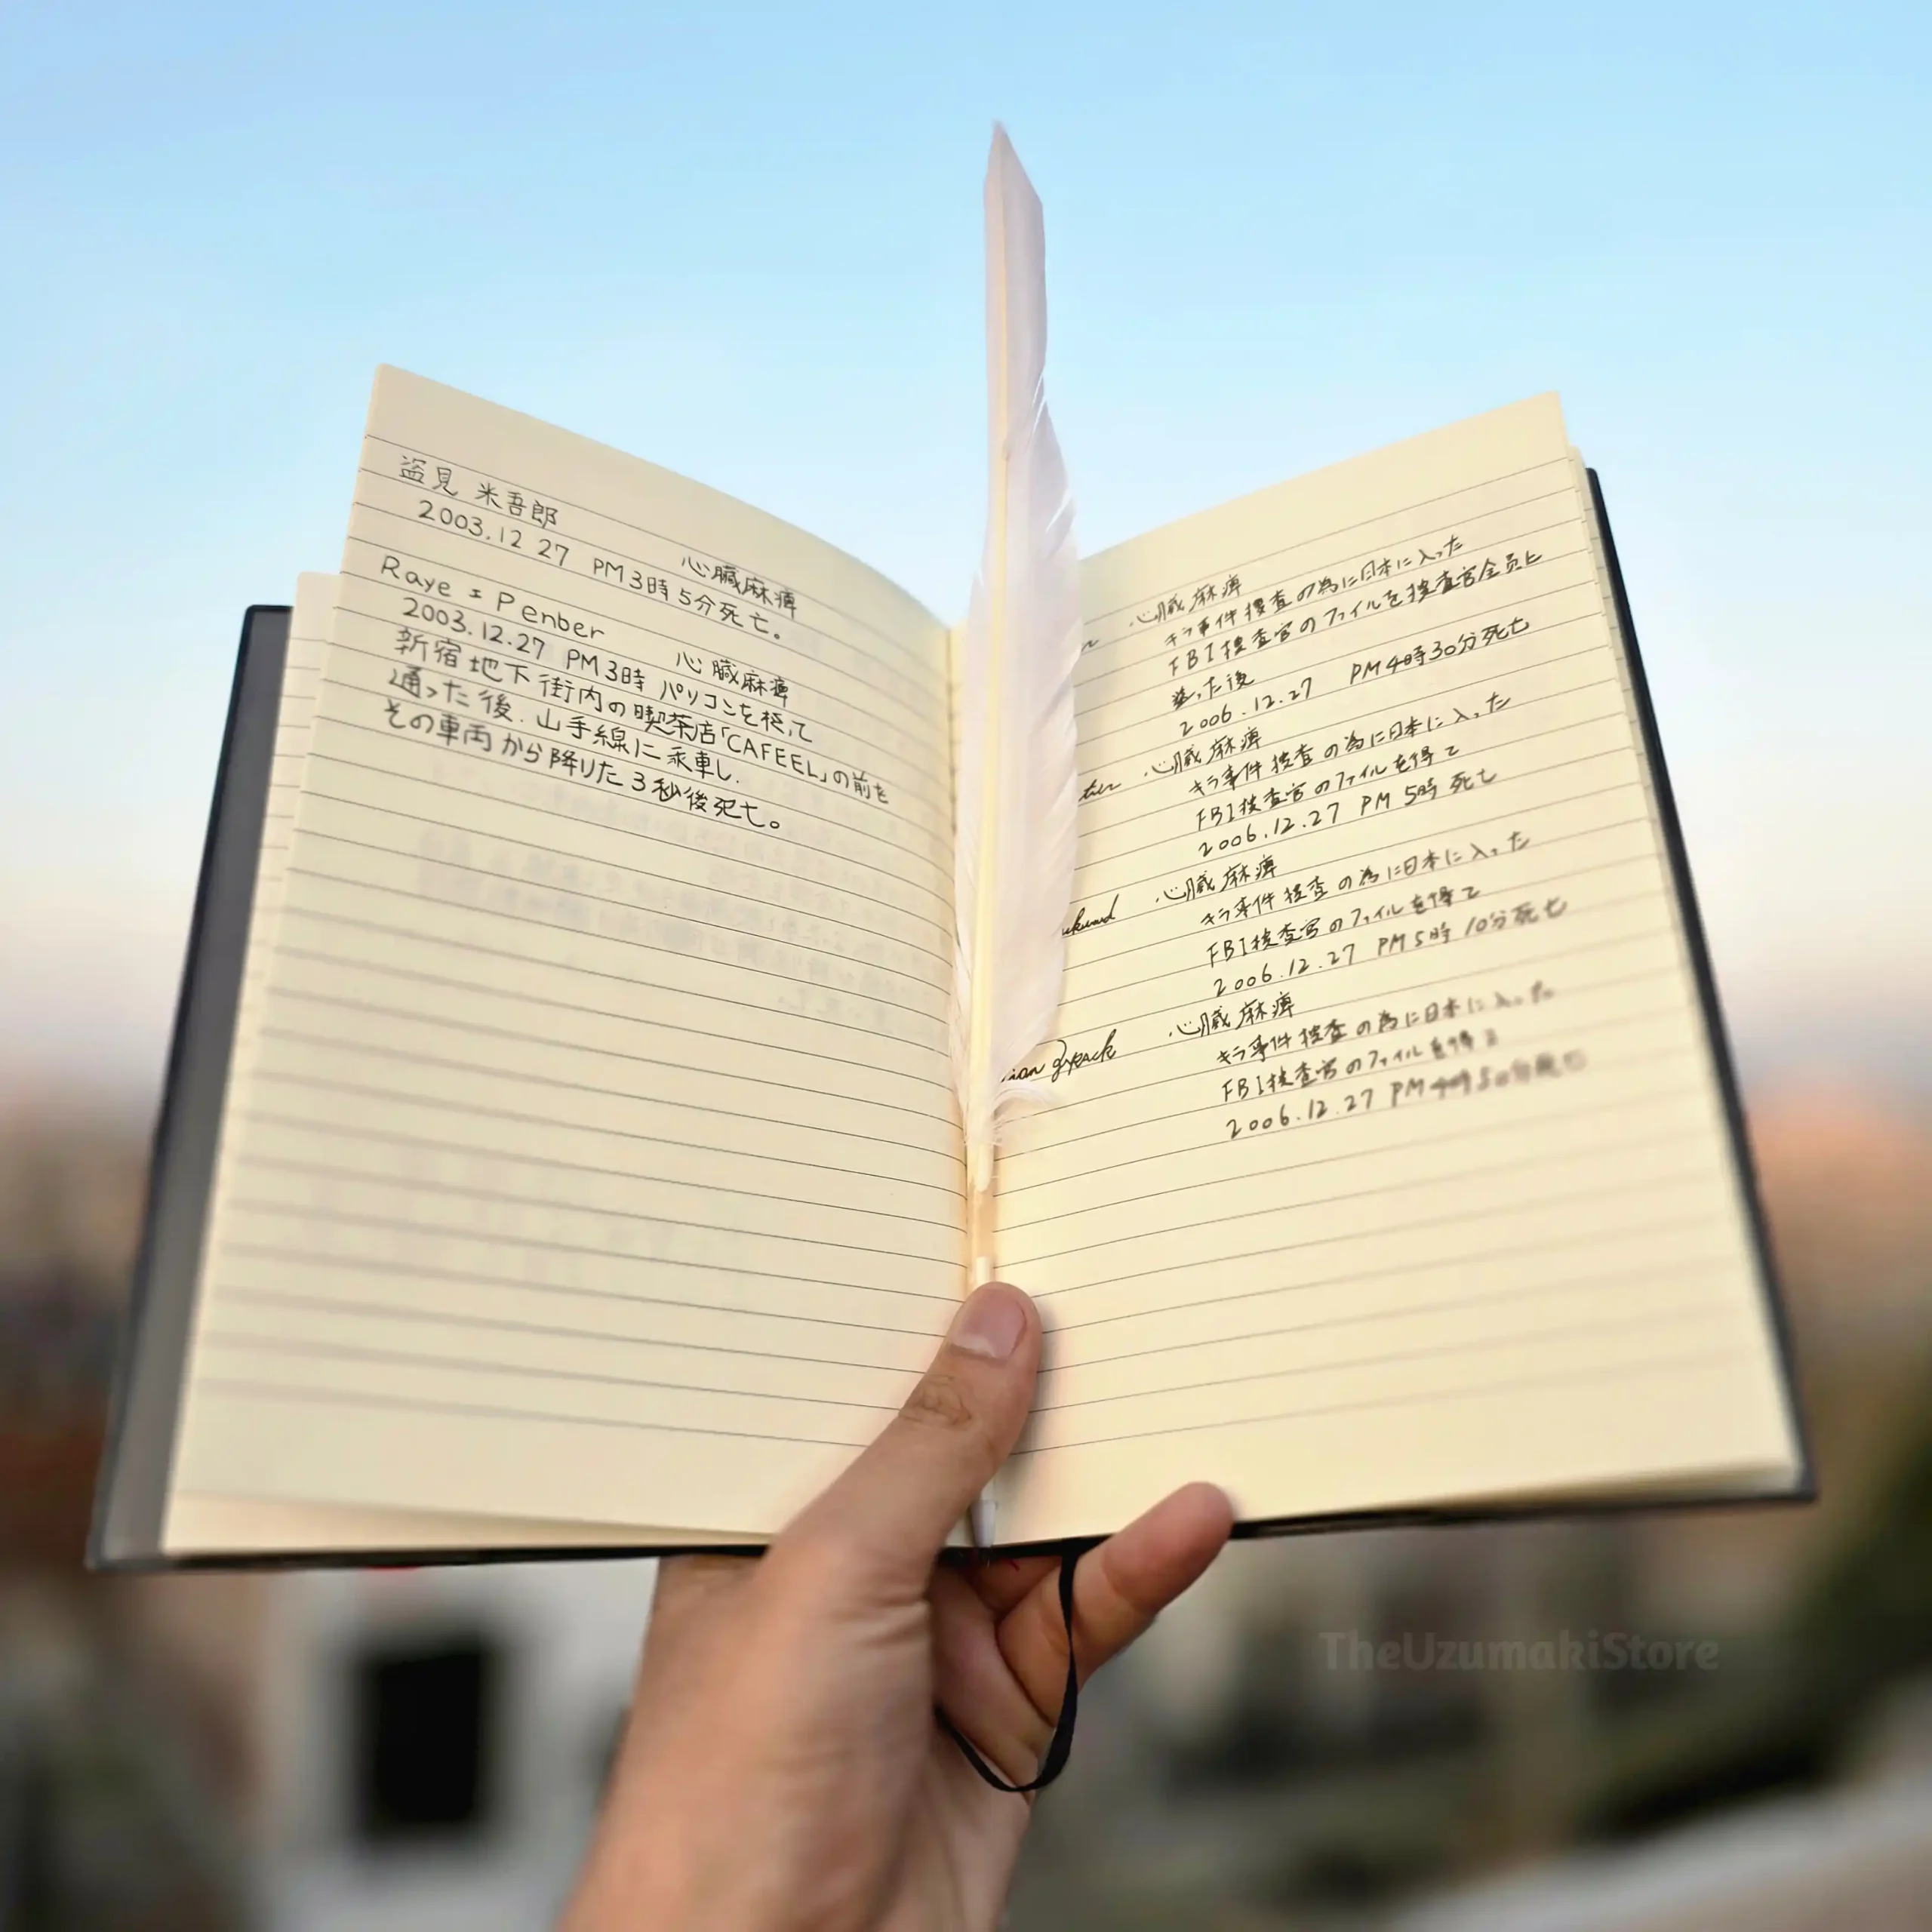 盗見 米吾郎
心臓麻痺
2003.12 27 PM3時5分死亡。
Raye = Penber
心臓麻痺
2003.12.27 PM3時 パソコンを
新宿地下街内の喫茶店「CAFEEL」の前を
通った後. 山手線に乗車し.
その車両から降りた3秒後死亡。
心臓麻痺
キラ事件捜査の為に日本に入った
FBI捜査官のファイルを捜査官全員に
った後
2006.12.27 PM4時30分死亡
心臓麻痺
キラ事件捜査の為に日本に入った
FBI捜査官のファイルを得て
2006.12.27 PM 5時 死亡
心臓麻痺
キラ事件捜査の為に日本に入った
FBI捜査官のファイルを得て
2006.12.27 PM5時10分死亡
心臓麻痺
キラ事件捜査の為に日本に入った
FBI捜査官のファイルを得て
2006.12.27 PM4時50分死亡
TheUzumakiStore